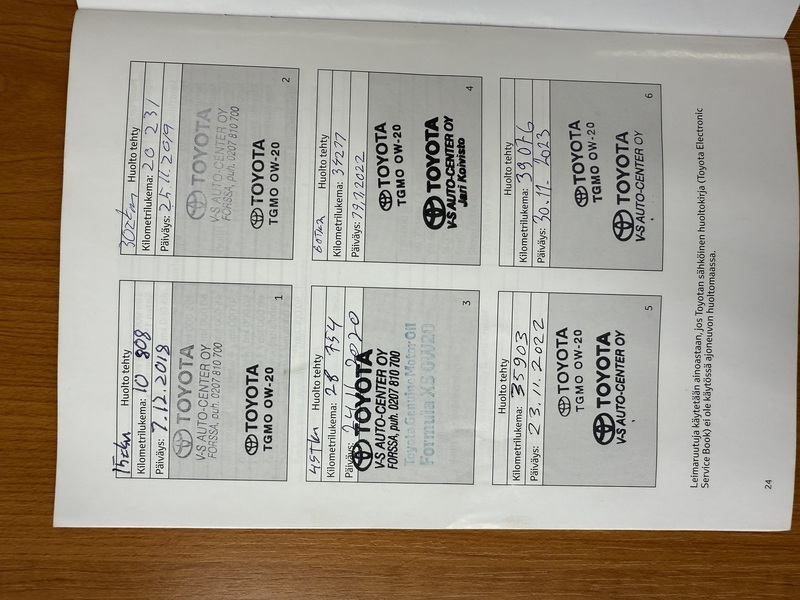 15tkm Huolto tehty
Kilometrilukema: 10 808
Päiväys: 7.12.2018
TOYOTA
V-S AUTO-CENTER OY
FORSSA, puh. 0207 810 700
TOYOTA
TGMO OW-20
1
30tkm Huolto tehty
Kilometrilukema: 20 231
Päiväys: 25.11.2019
TOYOTA
V-S AUTO-CENTER OY
FORSSA, puh. 0207 810 700
TOYOTA
TGMO OW-20
2
45tkm Huolto tehty
Kilometrilukema: 28 754
Päiväys: 2020
TOYOTA
V-S AUTO-CENTER OY
FORSSA, puh. 0207 810 700
Toyota Genuine Motor Oil
Formula XS 0W20
3
60tkm Huolto tehty
Kilometrilukema:
Päiväys:
TOYOTA
TGMO OW-20
TOYOTA
V-S AUTO-CENTER OY
Jari Koivisto
4
Huolto tehty
Kilometrilukema: 35903
Päiväys: 23.11.2022
TOYOTA
TGMO OW-20
TOYOTA
V-S AUTO-CENTER OY
5
Huolto tehty
Kilometrilukema: 39076
Päiväys: 30.11.2023
TOYOTA
TGMO OW-20
TOYOTA
V-S AUTO-CENTER OY
6
Leimaruutuja käytetään ainoastaan, jos Toyotan sähköinen huoltokirja (Toyota Electronic
Service Book) ei ole käytössä ajoneuvon huoltomaassa.
24